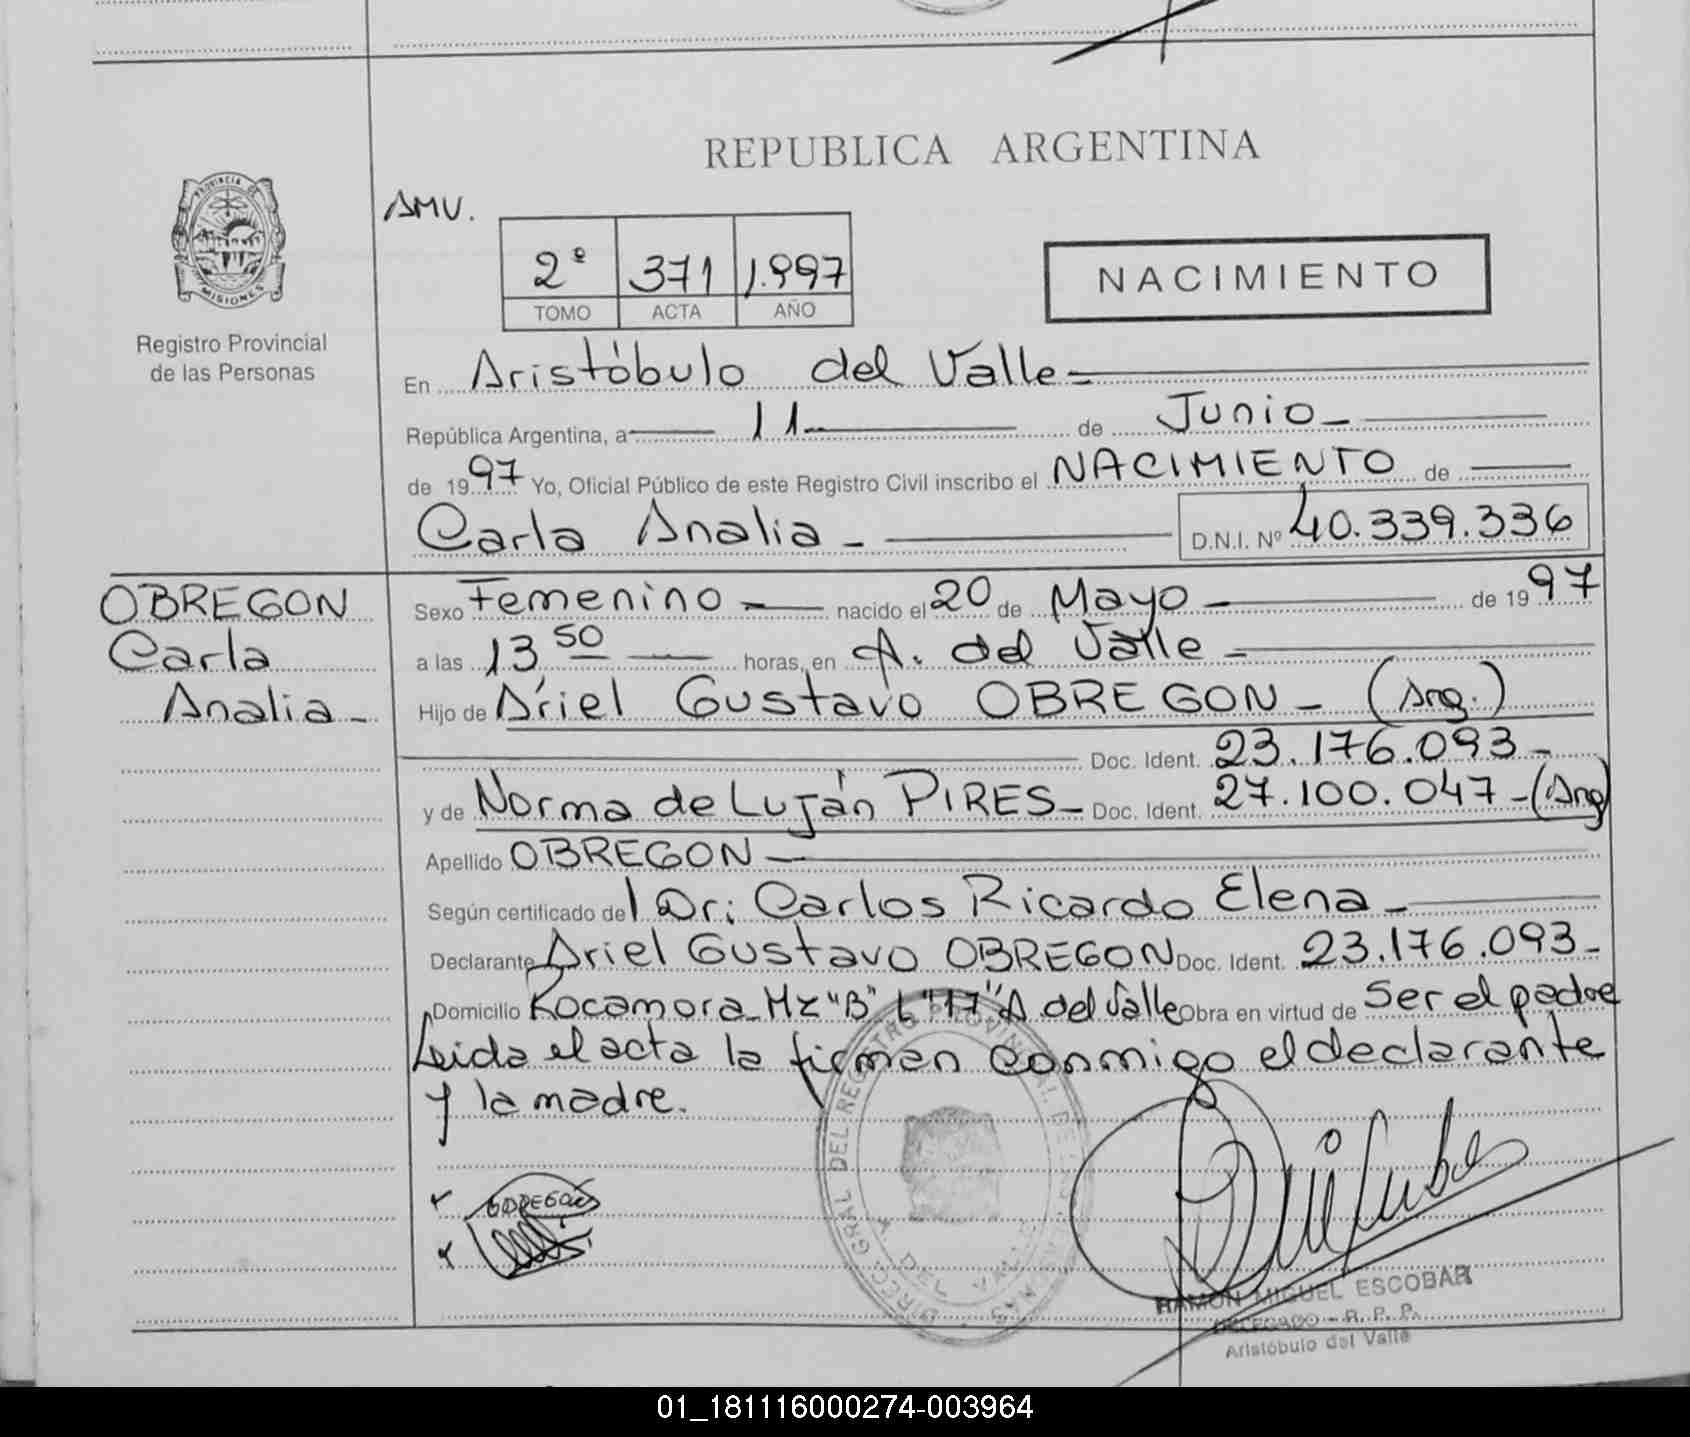 REPUBLICA ARGENTINA
PROVINCIA DE
MISIONES
Registro Provincial
de las Personas
AMV.
2º 371 1.997
TOMO ACTA AÑO
NACIMIENTO
En Aristóbulo del Valle -
República Argentina, a 11 de Junio -
de 1997 Yo, Oficial Público de este Registro Civil inscribo el NACIMIENTO de
Carla Analia - D.N.I. Nº 40.339.336
OBREGON
Carla
Analia -
Sexo Femenino - nacido el 20 de Mayo - de 1997
a las 13 50 horas, en A. del Valle -
Hijo de Ariel Gustavo OBREGON - (Arg.)
Doc. Ident. 23.176.093 -
y de Norma de Luján PIRES - Doc. Ident. 27.100.047 - (Arg)
Apellido OBREGON -
Según certificado del Dr: Carlos Ricardo Elena -
Declarante Ariel Gustavo OBREGON Doc. Ident. 23.176.093 -
Domicilio Rocamora Mz "B" L "17" A del Valle Obra en virtud de Ser el padre
Leida el acta la firman conmigo el declarante
y la madre.
OBREGON
DIRECC. GRAL DEL REGISTRO PROVINCIAL DE LAS PERSONAS
A. DEL VALLE
RAMON MIGUEL ESCOBAR
DELEGADO - R. P. P.
Aristóbulo del Valle
01_181116000274-003964